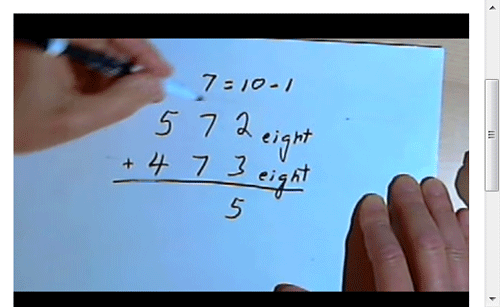 7 = 10 - 1
5 7 2 eight
+ 4 7 3 eight
5